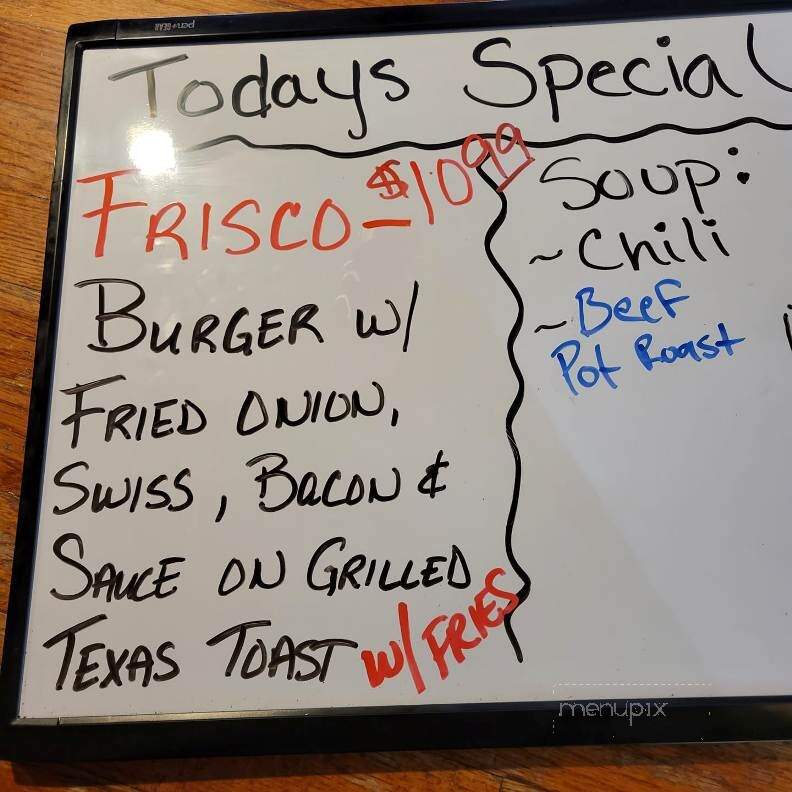 pen+GEAR
Todays Special
FRISCO - $10.99
BURGER W/
FRIED ONION,
SWISS, BACON &
SAUCE ON GRILLED
TEXAS TOAST W/ FRIES
Soup:
~ Chili
~ Beef
Pot Roast
menupix